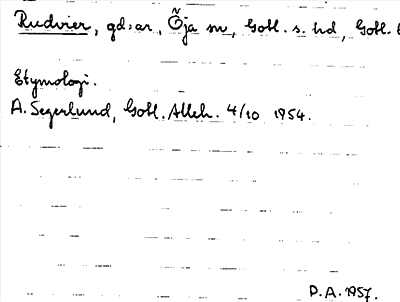 Rudvier, gd:ar, Öja sn, Gotl. s. hd, Gotl.
Etymologi.
A. Segerlund, Gotl. Alleh. 4/10 1954.
P.A. 1957.